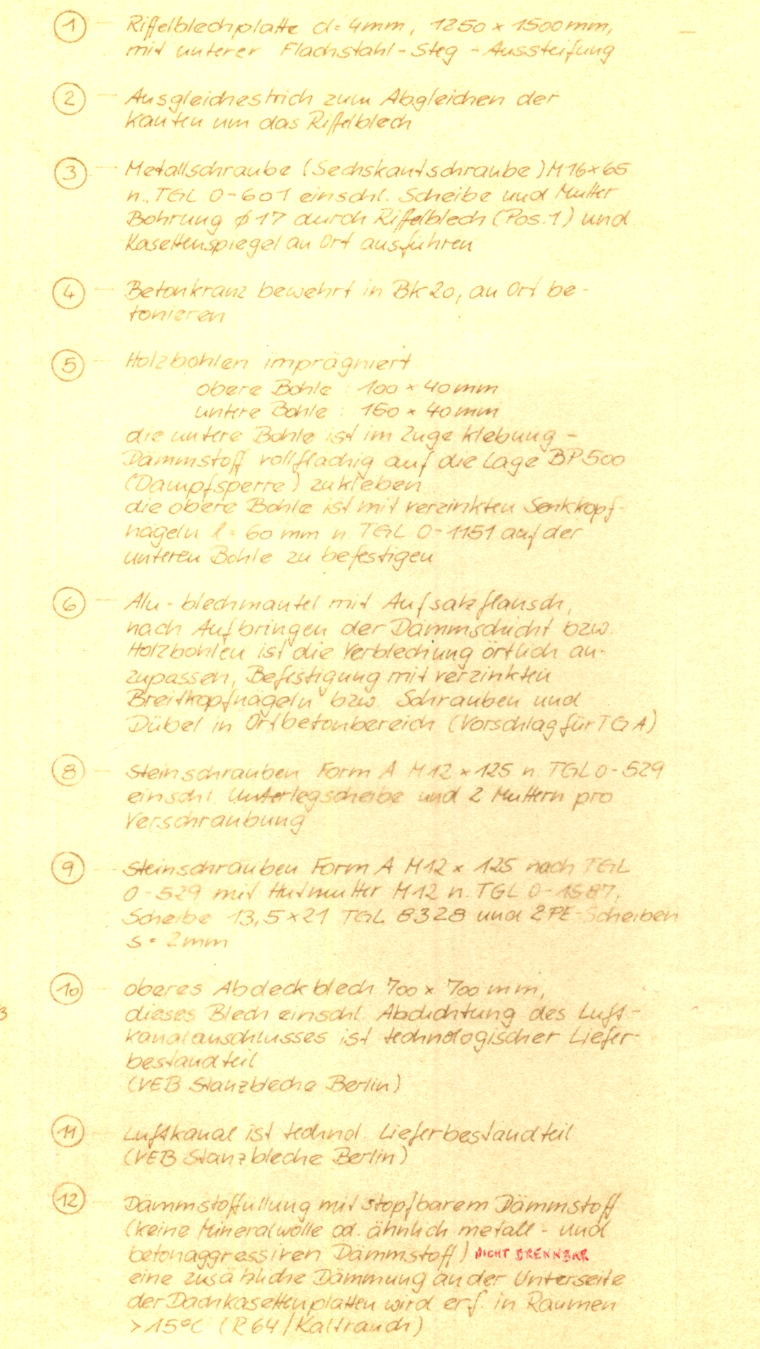 1 Riffelblechplatte d= 4mm, 1250 x 1500mm,
mit unterer Flachstahl-Steg-Aussteifung
2 Ausgleichestrich zum Abgleichen der
Kanten um das Riffelblech
3 Metallschraube (Sechskantschraube) M16x65
n. TGL 0-601 einschl. Scheibe und Mutter
Bohrung ϕ 17 durch Riffelblech (Pos.1) und
Kasettenspiegel an Ort ausführen
4 Betonkranz bewehrt in Bk 20, an Ort be-
tonieren
5 Holzbohlen imprägniert
obere Bohle : 100 x 40mm
untere Bohle : 160 x 40mm
die untere Bohle ist im Zuge Klebung -
Dämmstoff vollflächig auf die Lage BP500
(Dampfsperre) zu kleben
die obere Bohle ist mit verzinkten Senkkopf-
nägeln l= 60 mm n TGL 0-1151 auf der
unteren Bohle zu befestigen
6 Alu-blechmantel mit Aufsatzflansch,
nach Aufbringen der Dämmschicht bzw.
Holzbohlen ist die Verblechung örtlich an-
zupassen, Befestigung mit verzinkten
Breitkopfnägeln bzw. Schrauben und
Dübel in Ortbetonbereich (Vorschlag für TGA)
8 Steinschrauben Form A M12 x 125 n. TGL 0-529
einschl. Unterlegscheibe und 2 Muttern pro
Verschraubung
9 Steinschrauben Form A M12 x 125 nach TGL
0-529 mit Hutmutter M12 n. TGL 0-1587,
Scheibe 13,5x21 TGL 8328 und 2PE-Scheiben
s= 2mm
10 oberes Abdeckblech 700 x 700 mm,
3
dieses Blech einschl. Abdichtung des Luft-
kanalanschlusses ist technologischer Liefer-
bestandteil
(VEB Stanzbleche Berlin)
11 Luftkanal ist technol. Lieferbestandteil
(VEB Stanzbleche Berlin)
12 Dämmstoffüllung mit stopfbarem Dämmstoff
(keine Mineralwolle od. ähnlich metall- und
betonaggressiven Dämmstoff) NICHT BRENNBAR
eine zusätzliche Dämmung an der Unterseite
der Dachkasettenplatten wird erf. in Räumen
>15°C (R64/Kaltrauch)